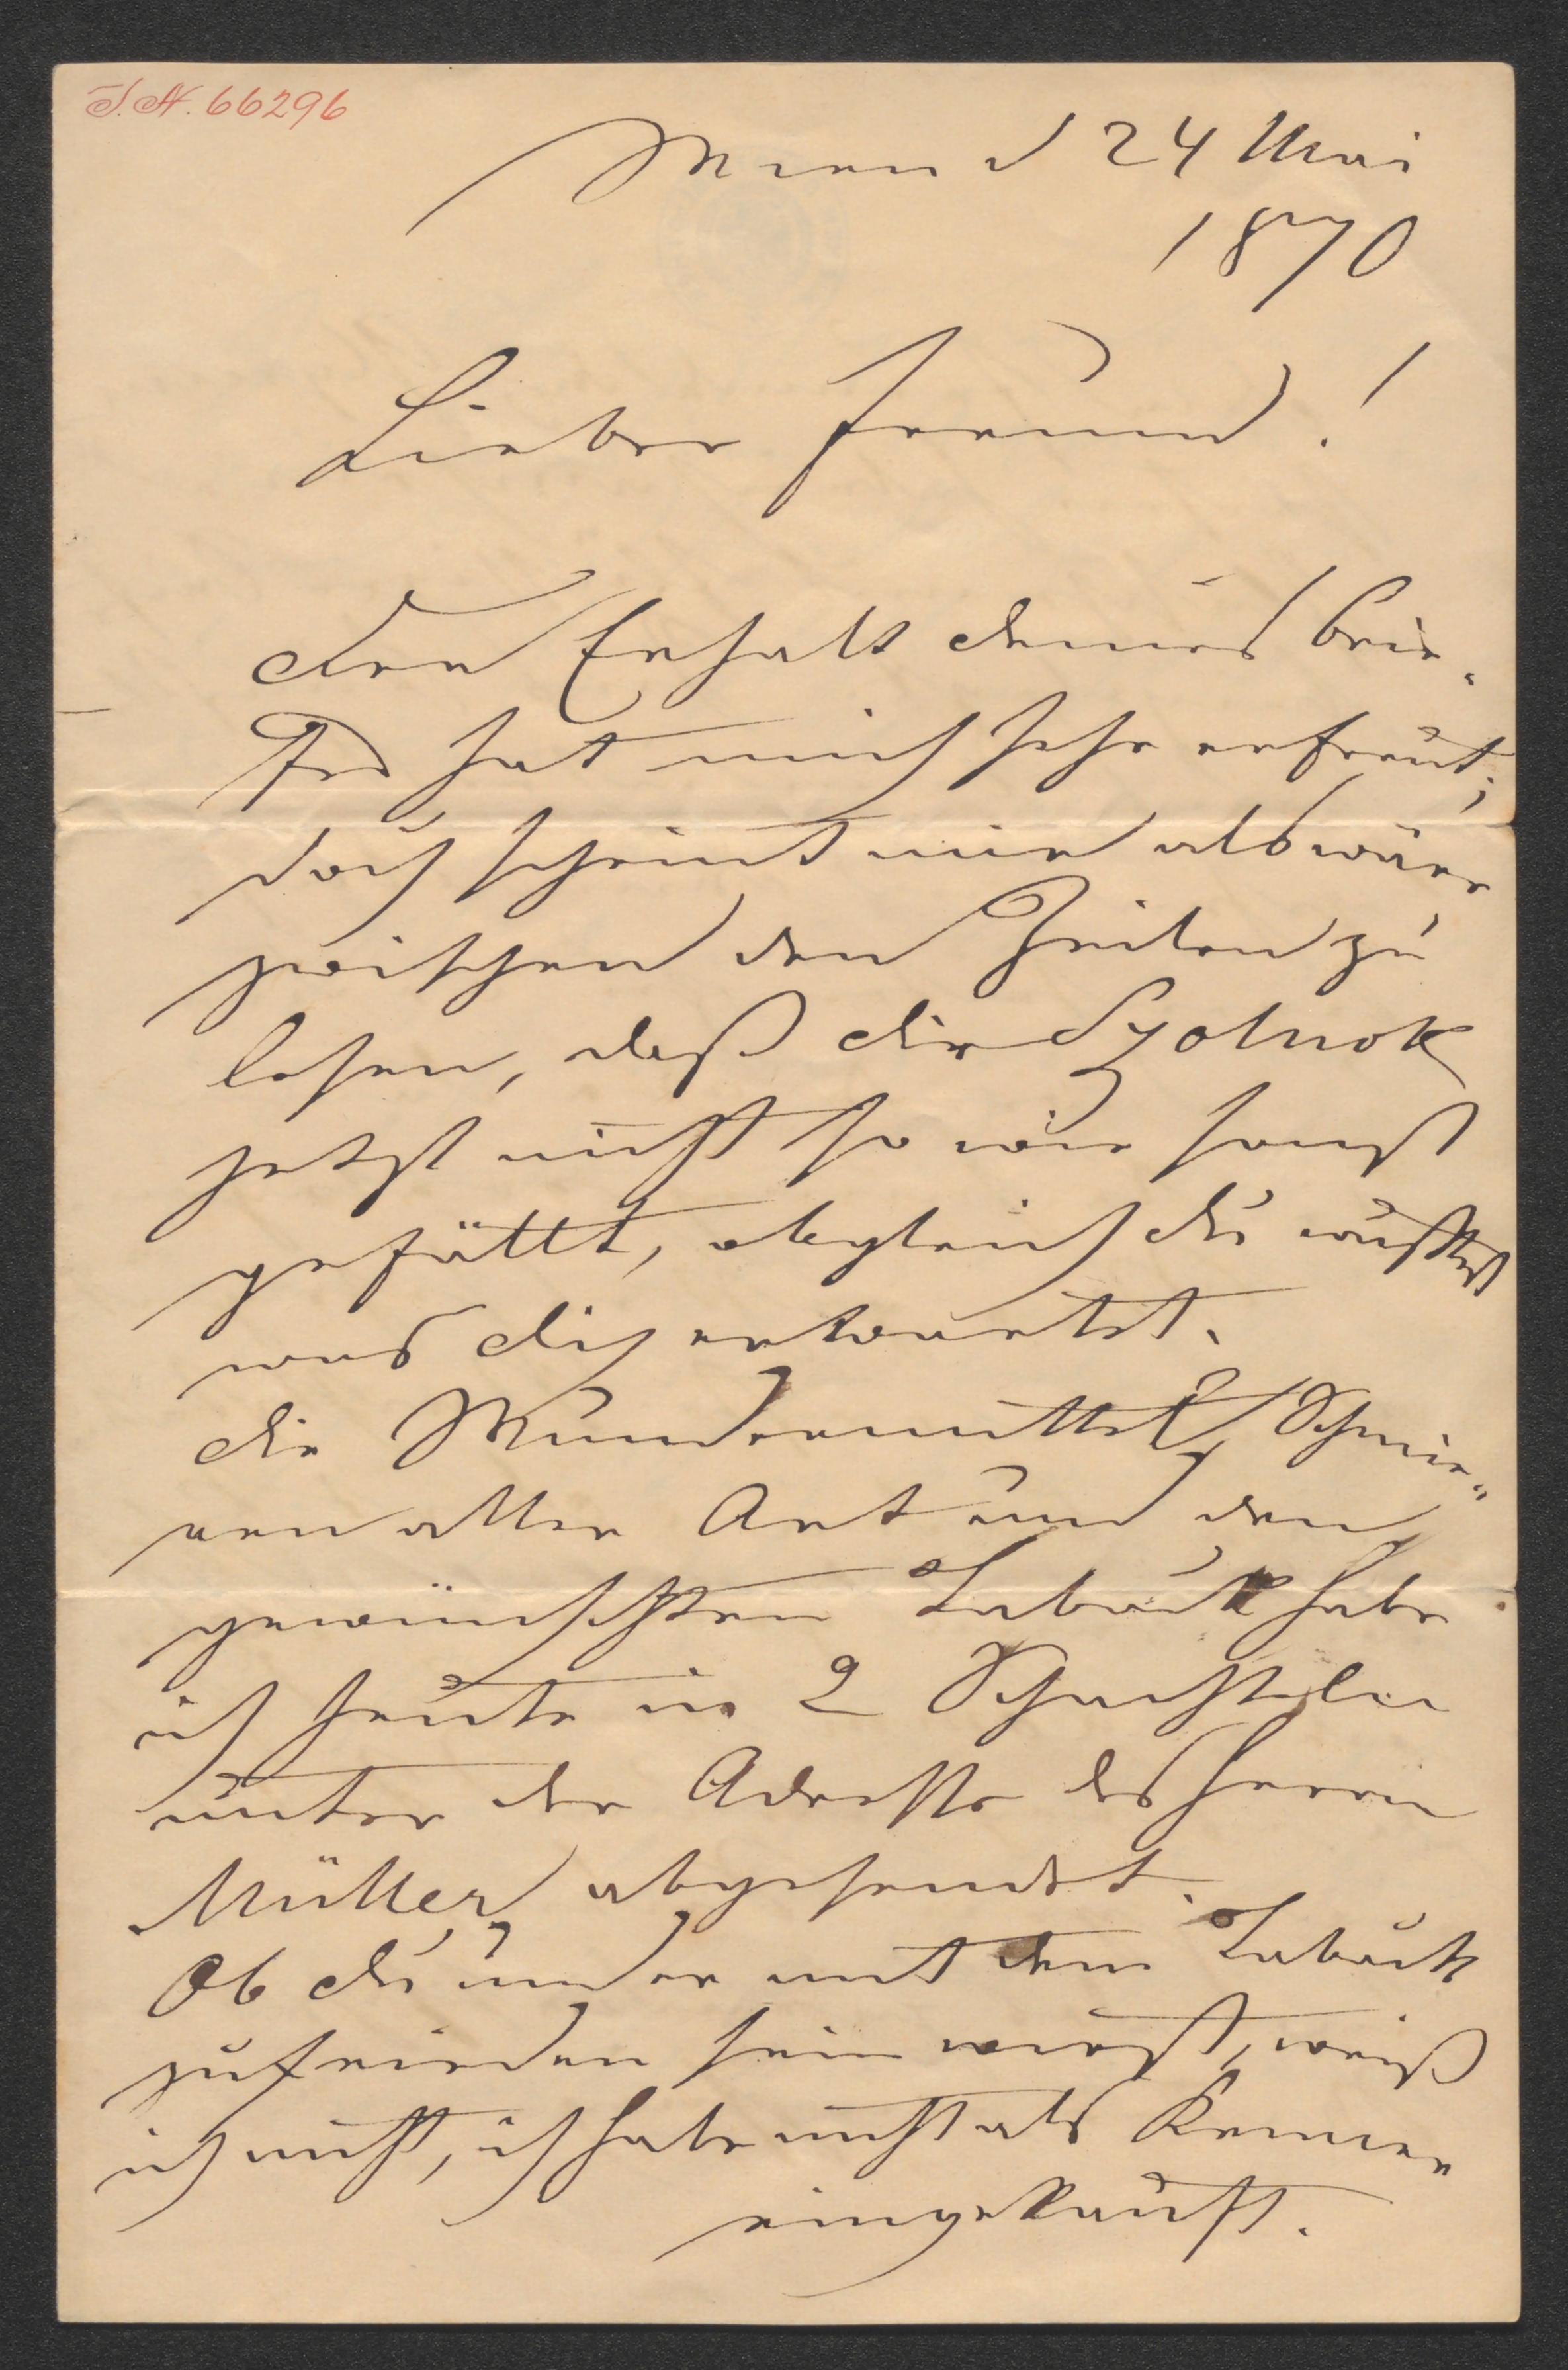 I.N. 66296
Wien d 24 Mai
1870
Lieber Freund!
den Erhalt deines Brie-
fes hat mich sehr erfreut;
doch scheint mir als wäre
zwischen den Zeilen zu
lesen, daß dir Szolnok
jetzt nicht so wie sonst
gefällt, obgleich du wußtest
was dich erwartet.
die Mundmittel, Schmie-
ren aller Art und den
gewünschten Taback habe
ich heute in 2 Schachteln
unter der Adresse des Herrn
Müller abgesendet.
Ob du nun mit dem Taback
zufrieden sein wirst, weiß
ich nicht, ich habe nicht als Kenner
eingekauft.